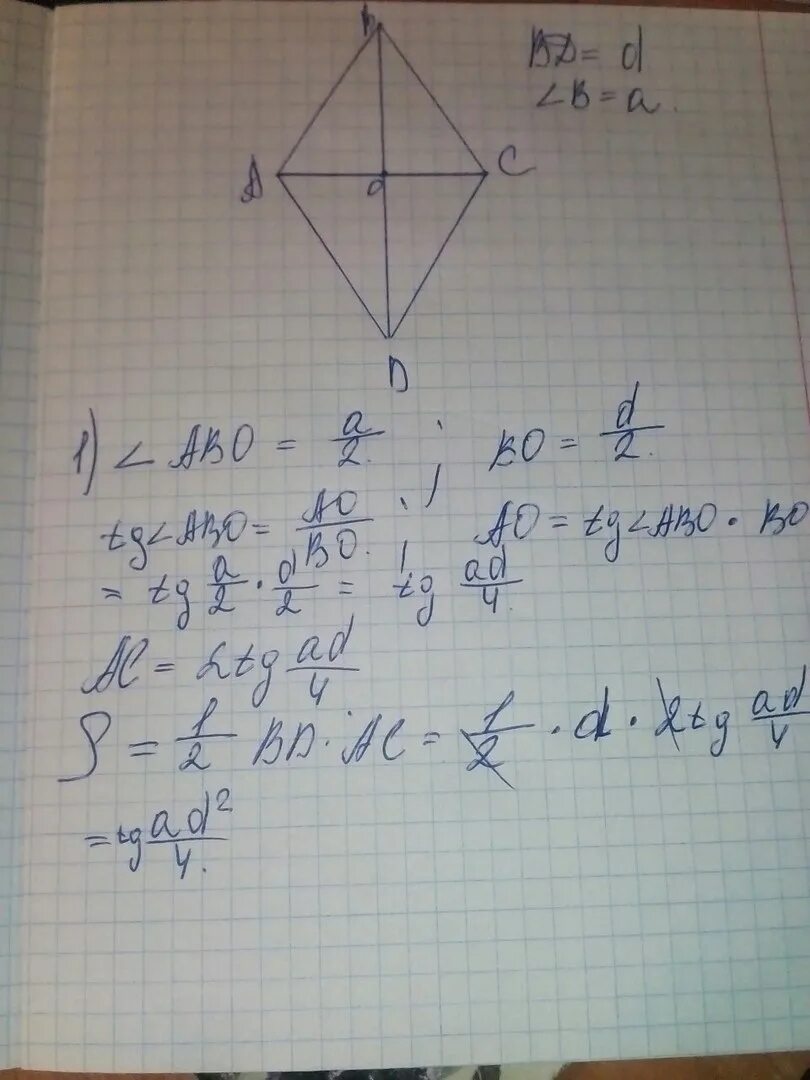 B
BD = d
∠B = a.
A
O
C
D
1) ∠ABO = a/2. ; BO = d/2.
tg∠ABO = AO/BO. ; AO = tg∠ABO · BO
= tg a/2 · d/2 = tg ad/4.
AC = 2tg ad/4
S = 1/2 BD · AC = 1/2 · d · 2tg ad/4
= tg ad²/4.